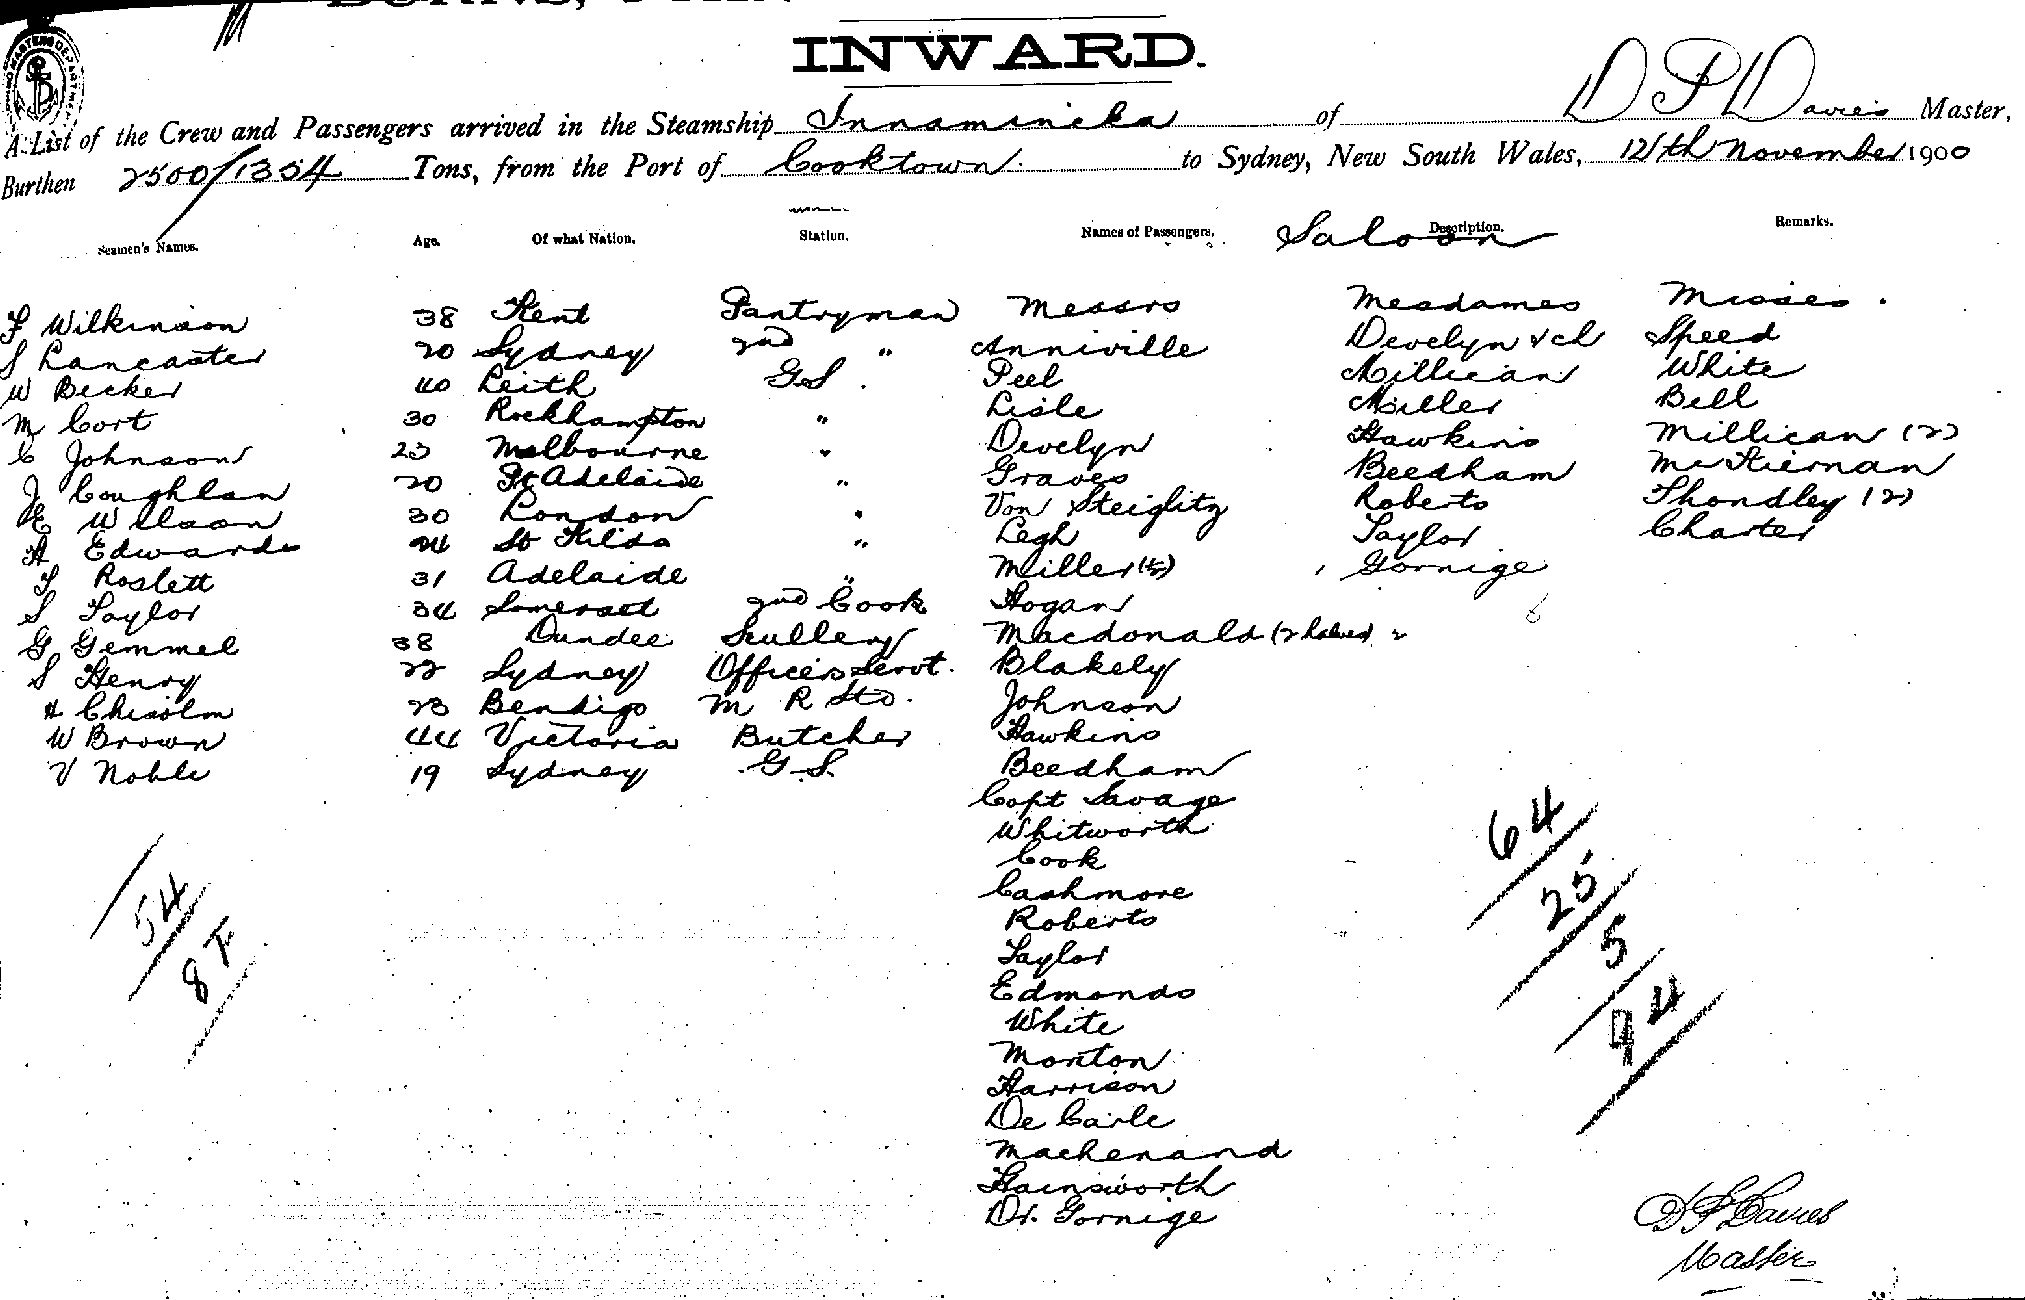 INWARD.
A List of the Crew and Passengers arrived in the Steamship Innamincka of D P Davies Master,
Burthen 2500/1354 Tons, from the Port of Cooktown to Sydney, New South Wales, 12/th November 1900
Seamen's Names. Age. Of what Nation. Station. Names of Passengers. Saloon Description. Remarks.
F Wilkinson 38 Kent Pantryman Messrs Mesdames Misses.
S Lancaster 20 Sydney 2nd " Anniville Develyn & ch Speed
W Becker 40 Leith G.S. Peel Millican White
M Cort 30 Rockhampton " Lisle Miller Bell
C Johnson 23 Melbourne " Develyn Hawkins Millican (2)
J Coughlan 20 Pt Adelaide " Graves Beedham McKiernan
E Wilson 30 London " Von Steiglitz Roberts Thondley (2)
A Edwards 24 St Kilda " Legh Taylor Charter
T Roslett 31 Adelaide " Miller (½) Gornige
S Taylor 34 Somerset 2nd Cook Hogan
G Gemmel 38 Dundee Scullery Macdonald (2 halves) 2
S Henry 22 Sydney Officers Servt. Blakely
H Chisolm 23 Bendigo M R Std. Johnson
W Brown 44 Victoria Butcher Hawkins
V Noble 19 Sydney G.S. Beedham
Capt Savage
Whitworth
Cook
Cashmore
Roberts
Taylor
Edmonds
White
Monton
Harrison
De Carle
Mackenand
Hainsworth
Dr. Gornige
54
8 F
64
25
5
94
D P Davies
Master